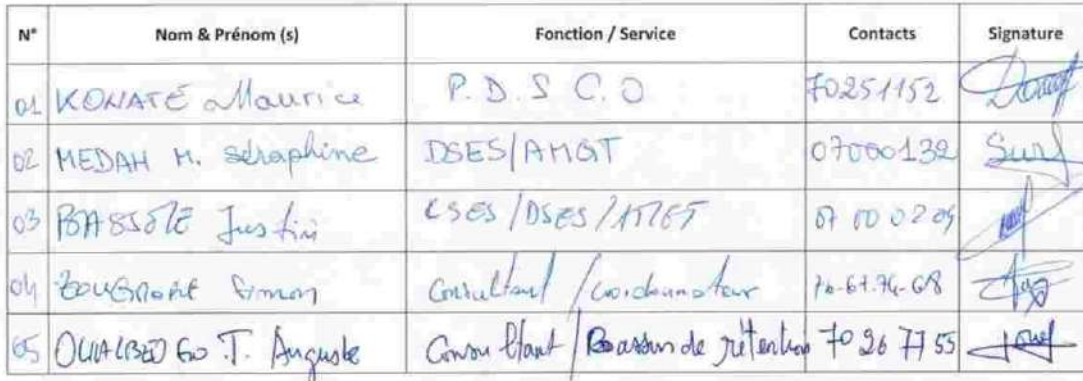 N° Nom & Prénom (s) Fonction / Service Contacts Signature
01 KONATÉ Maurice P.D.S.C.O 70251152
02 MEDAH M. Séraphine DSES/AMGT 07000132
03 BASSOLE Justin CSES/DSES/ 07 00 02 09
04 ZOUGROUNE Simon Consultant / Coordonnateur 70-67.74-68
05 T. Auguste Consultant / Bassin de rétention 70 26 77 55